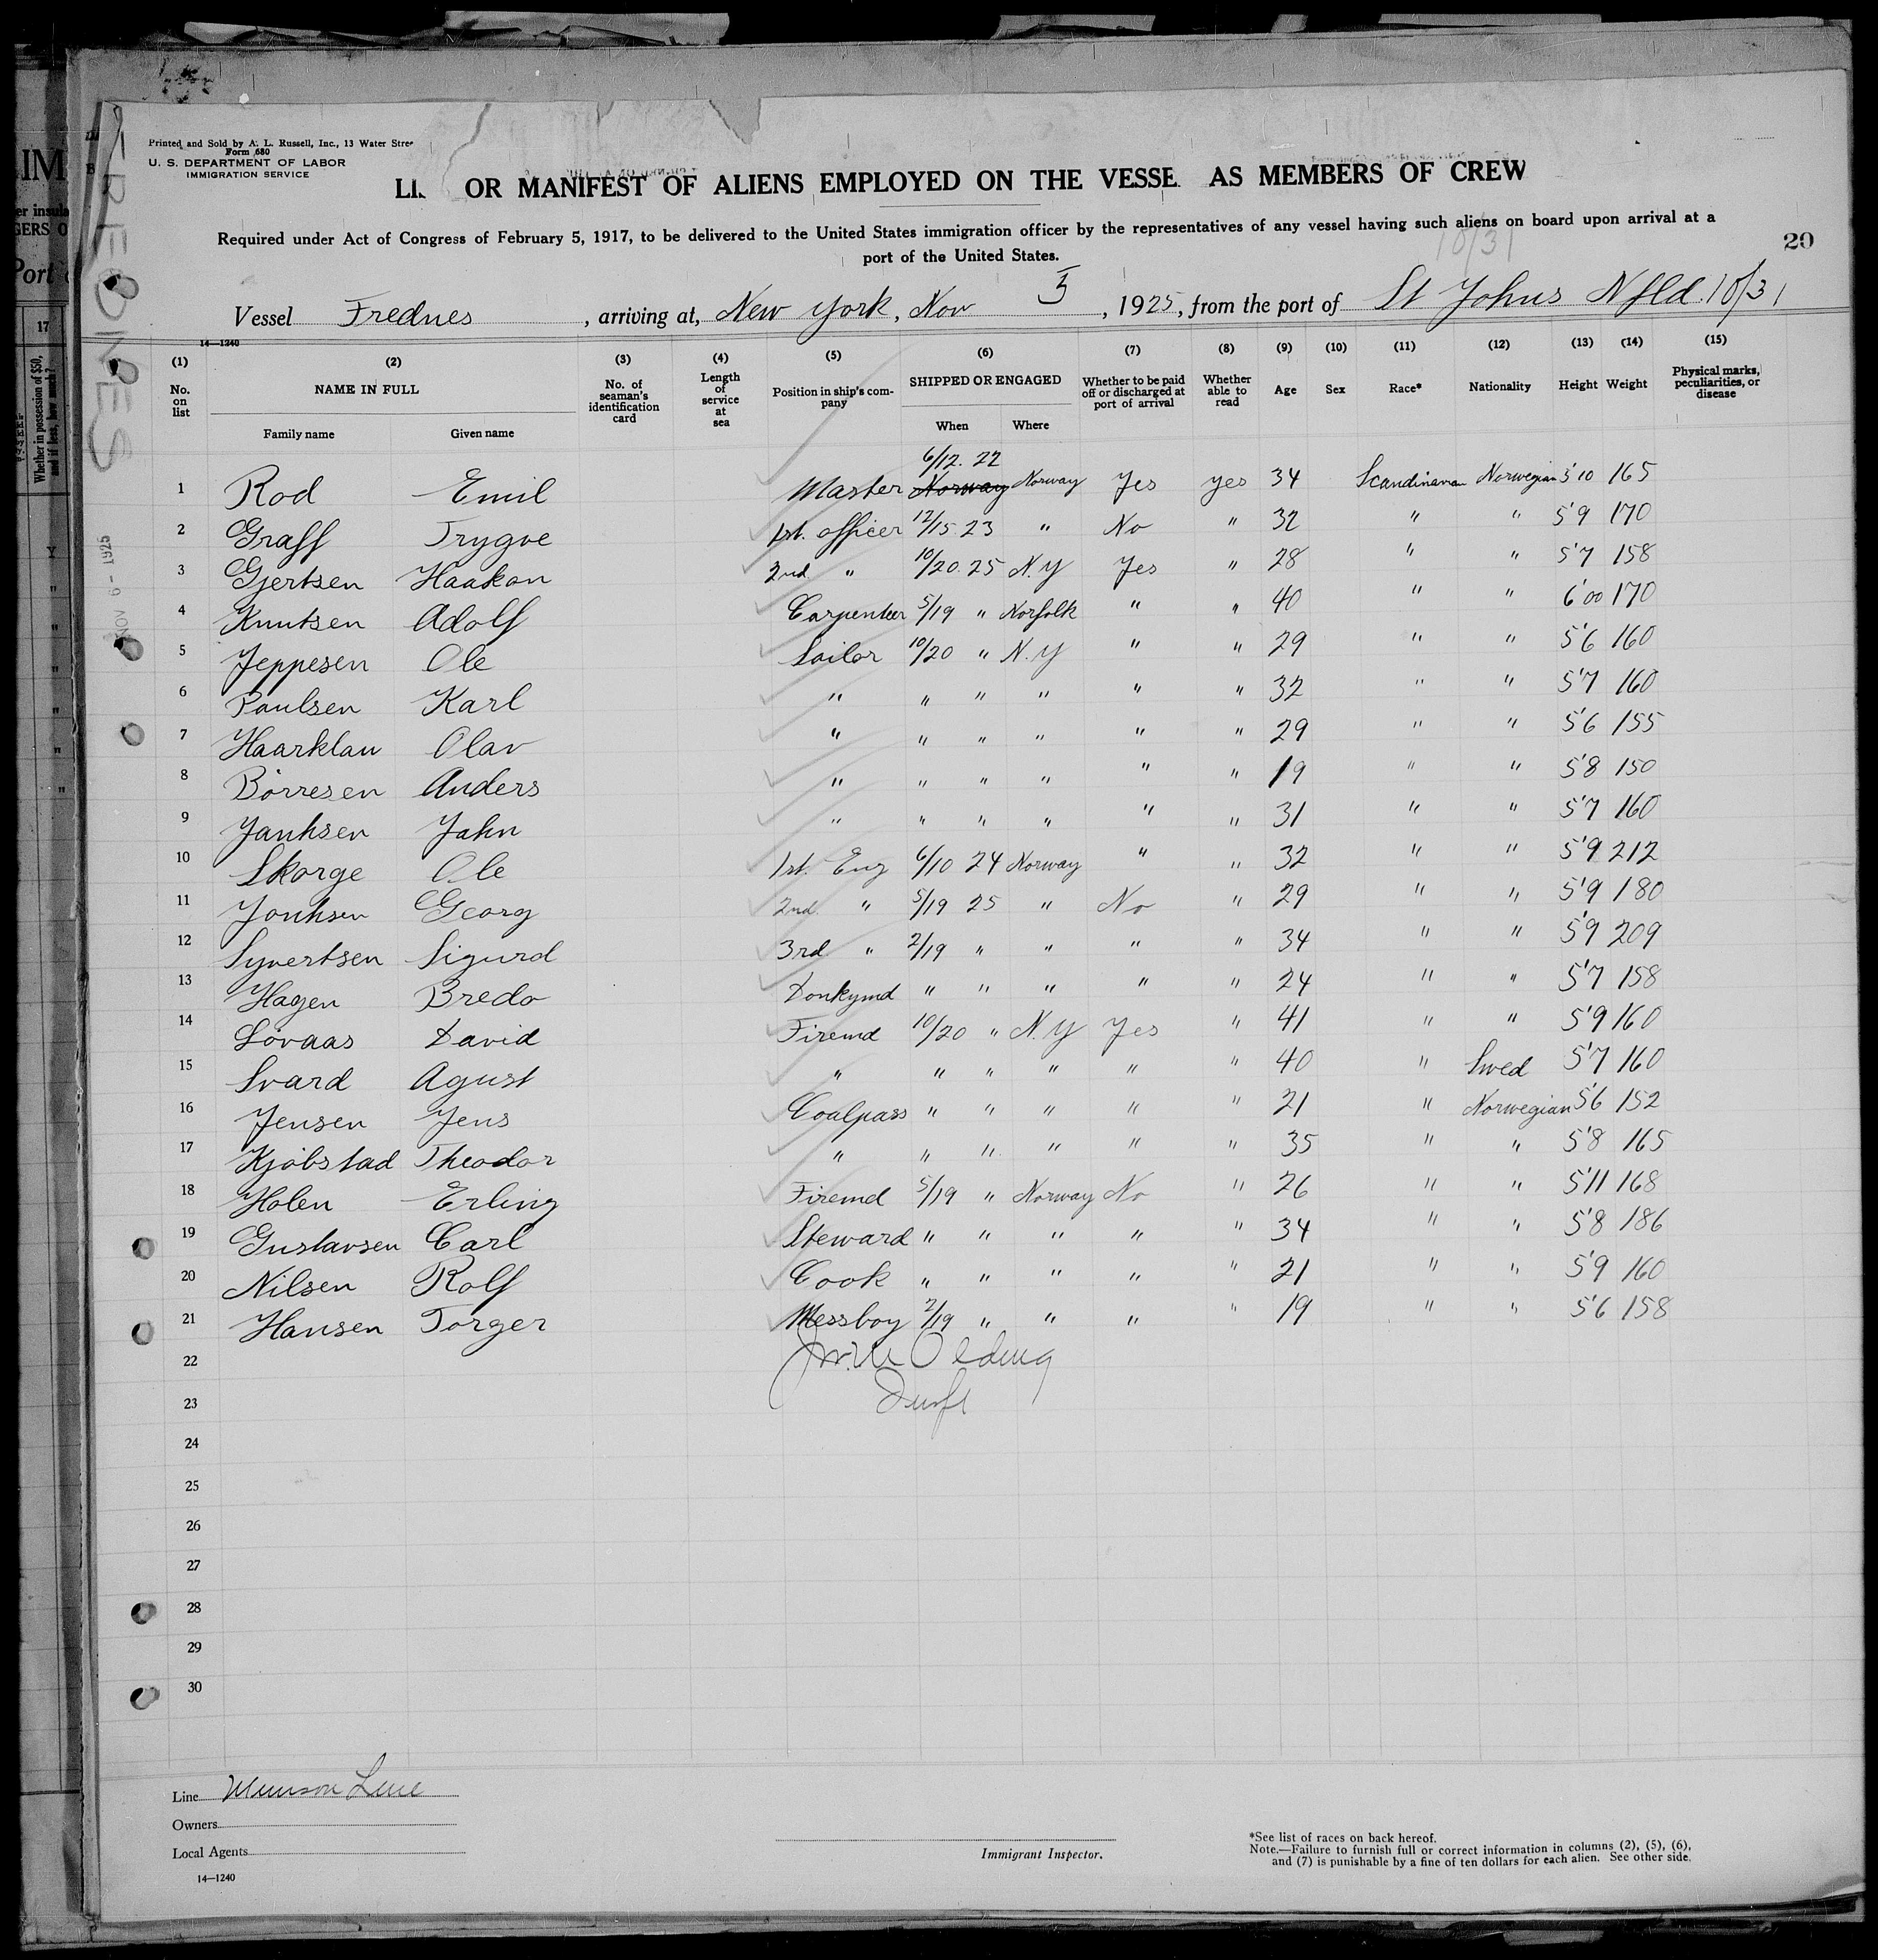 Printed and Sold by A. L. Russell, Inc., 13 Water Stre
Form 680
U. S. DEPARTMENT OF LABOR
IMMIGRATION SERVICE
LIS OR MANIFEST OF ALIENS EMPLOYED ON THE VESSE AS MEMBERS OF CREW
Required under Act of Congress of February 5, 1917, to be delivered to the United States immigration officer by the representatives of any vessel having such aliens on board upon arrival at a
port of the United States.
10/31
20
Vessel Frednes, arriving at, New York, Nov 5, 1925, from the port of St Johns Nfld. 10/31
14—1240
(1) (2) (3) (4) (5) (6) (7) (8) (9) (10) (11) (12) (13) (14) (15)
No. on list NAME IN FULL No. of seaman's identification card Length of service at sea Position in ship's company SHIPPED OR ENGAGED Whether to be paid off or discharged at port of arrival Whether able to read Age Sex Race* Nationality Height Weight Physical marks, peculiarities, or disease
Family name Given name When Where
6/12. 22
1 Rod Emil Master Norway Norway Yes yes 34 Scandinavian Norwegian 5'10 165
2 Graff Trygve 1st. officer 12/15 23 " No " 32 " " 5'9 170
3 Gjertsen Haakon 2nd. " 10/20. 25 N.Y Yes " 28 " " 5'7 158
4 Knutsen Adolf Carpenter 5/19 " Norfolk " " 40 " " 6'00 170
5 Jeppesen Ole Sailor 10/20 " N.Y " " 29 " " 5'6 160
6 Paulsen Karl " " " " " " 32 " " 5'7 160
7 Haarklau Olav " " " " " " 29 " " 5'6 155
8 Börresen Anders " " " " " " 19 " " 5'8 150
9 Janhsen Jahn " " " " " " 31 " " 5'7 160
10 Skorge Ole 1st. Eng 6/10 24 Norway " " 32 " " 5'9 212
11 Jonhsen Georg 2nd. " 5/19 25 " No " 29 " " 5'9 180
12 Syvertsen Sigurd 3rd " 2/19 " " " " 34 " " 5'9 209
13 Hagen Bredo Donkymd " " " " " 24 " " 5'7 158
14 Lövaas David Firemd 10/20 " N.Y Yes " 41 " " 5'9 160
15 Svard Agust " " " " " " 40 " Swed 5'7 160
16 Jensen Jens Coalpass " " " " " 21 " Norwegian 5'6 152
17 Kjöbstad Theodor " " " " " " 35 " " 5'8 165
18 Holen Erling Firemd 5/19 " Norway No " 26 " " 5'11 168
19 Gustavsen Carl Steward " " " " " 34 " " 5'8 186
20 Nilsen Rolf Cook " " " " " 21 " " 5'9 160
21 Hansen Torger Messboy 2/19 " " " " 19 " " 5'6 158
22
23
24
25
26
27
28
29
30
NOV 6 - 1925
Line Munson Line
Owners
Local Agents
14—1240
Immigrant Inspector.
*See list of races on back hereof.
Note.—Failure to furnish full or correct information in columns (2), (5), (6),
and (7) is punishable by a fine of ten dollars for each alien. See other side.
17
Whether in possession of $50,
and if less, how much?